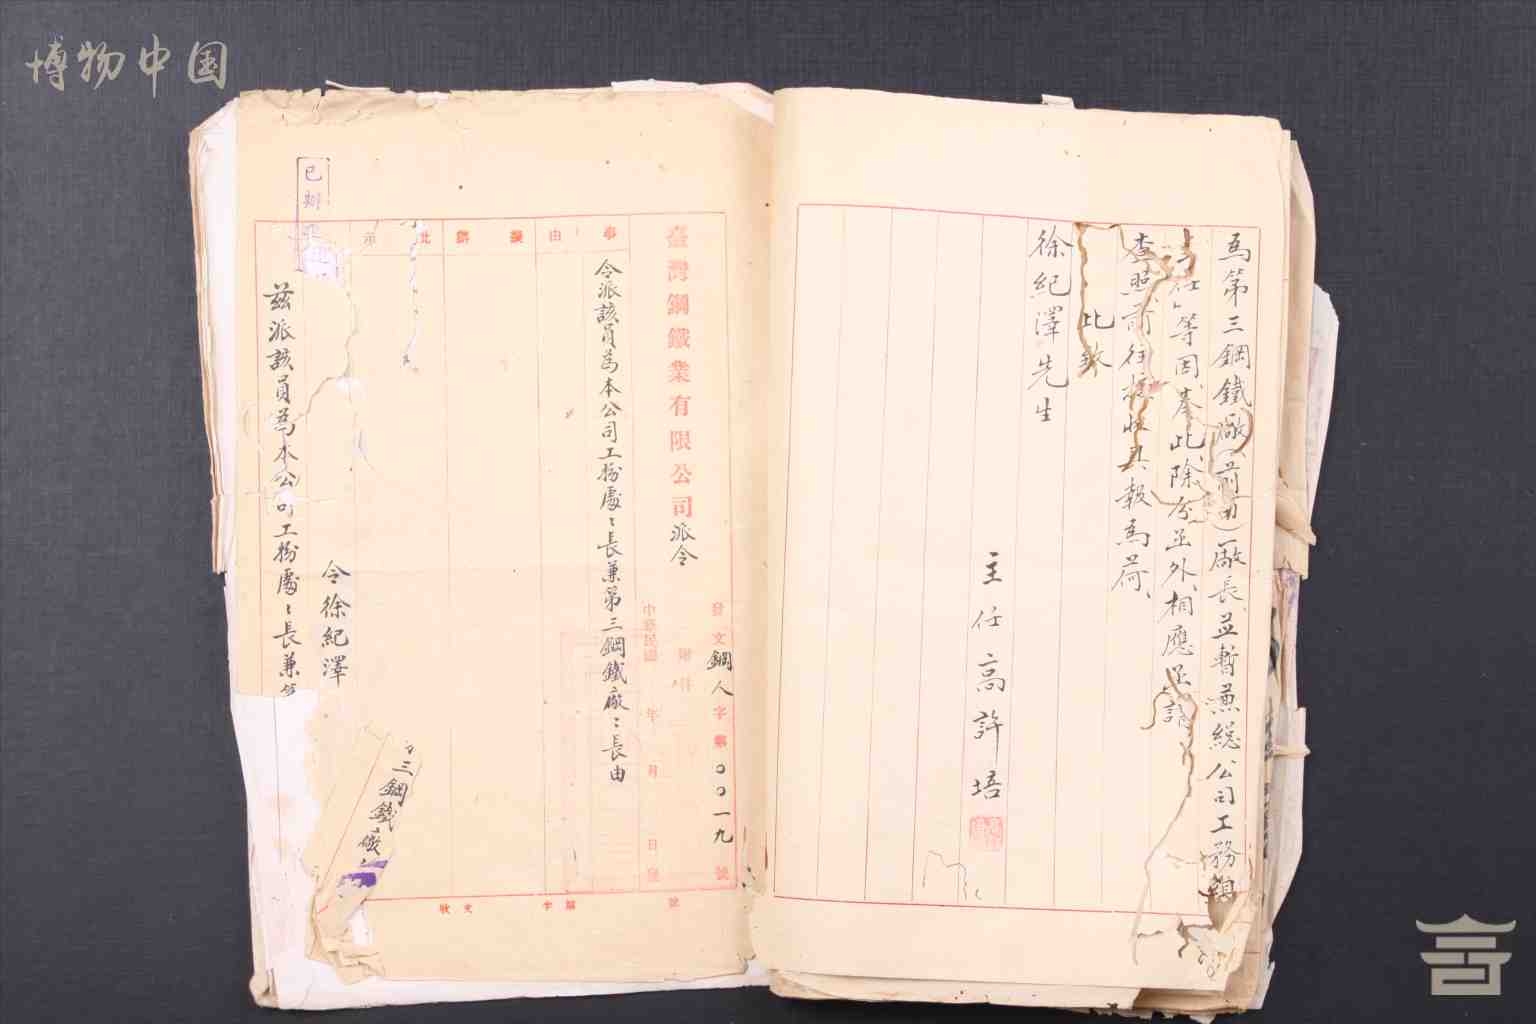 博物中国
為第三鋼鐵廠(前田)廠長並暫兼總公司工務
主任」等因、奉此除分函外、相應函請
查照前往接收具報為荷、
此致
徐紀澤先生
主任高許培
臺灣鋼鐵業有限公司派令
發文鋼人字第〇〇一九號
附件
中華民國 年 月 日發
事由
令派該員為本公司工務處長兼第三鋼鐵廠長由
擬辦
批示
收文 字第 號
已辦
令徐紀澤
茲派該員為本公司工務處長兼第
三鋼鐵廠